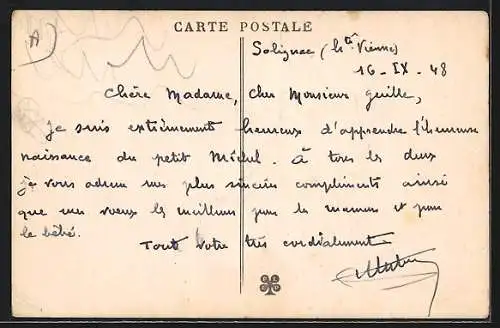 A
CARTE POSTALE
Solignac (Hte Vienne)
16 - IX - 48
Chère Madame, Cher Monsieur
Je suis extrêmement heureux d'apprendre l'heureuse
naissance du petit Michel. À tous les deux
je vous adresse mes plus sincères compliments ainsi
que mes voeux les meilleurs pour la maman et pour
le bébé. Tout votre très cordialement